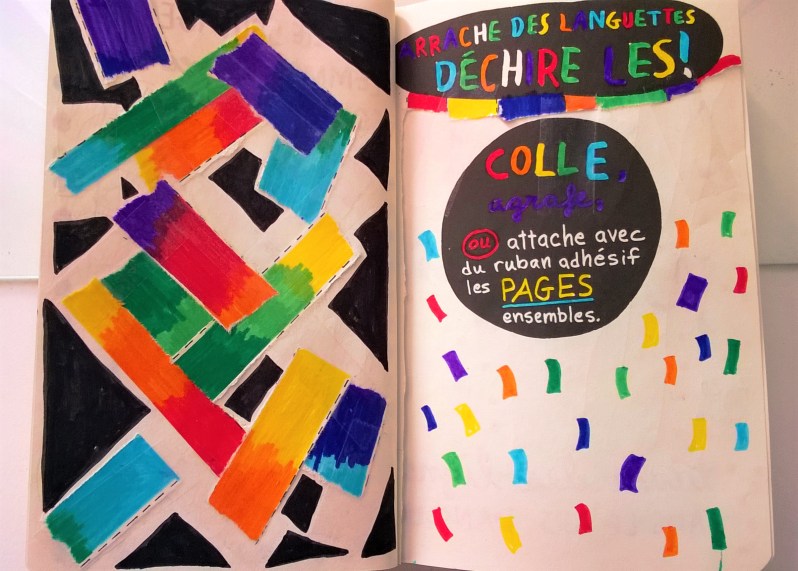 ARRACHE DES LANGUETTES
DÉCHIRE LES!
COLLE,
agrafe,
OU attache avec
du ruban adhésif
les PAGES
ensembles.